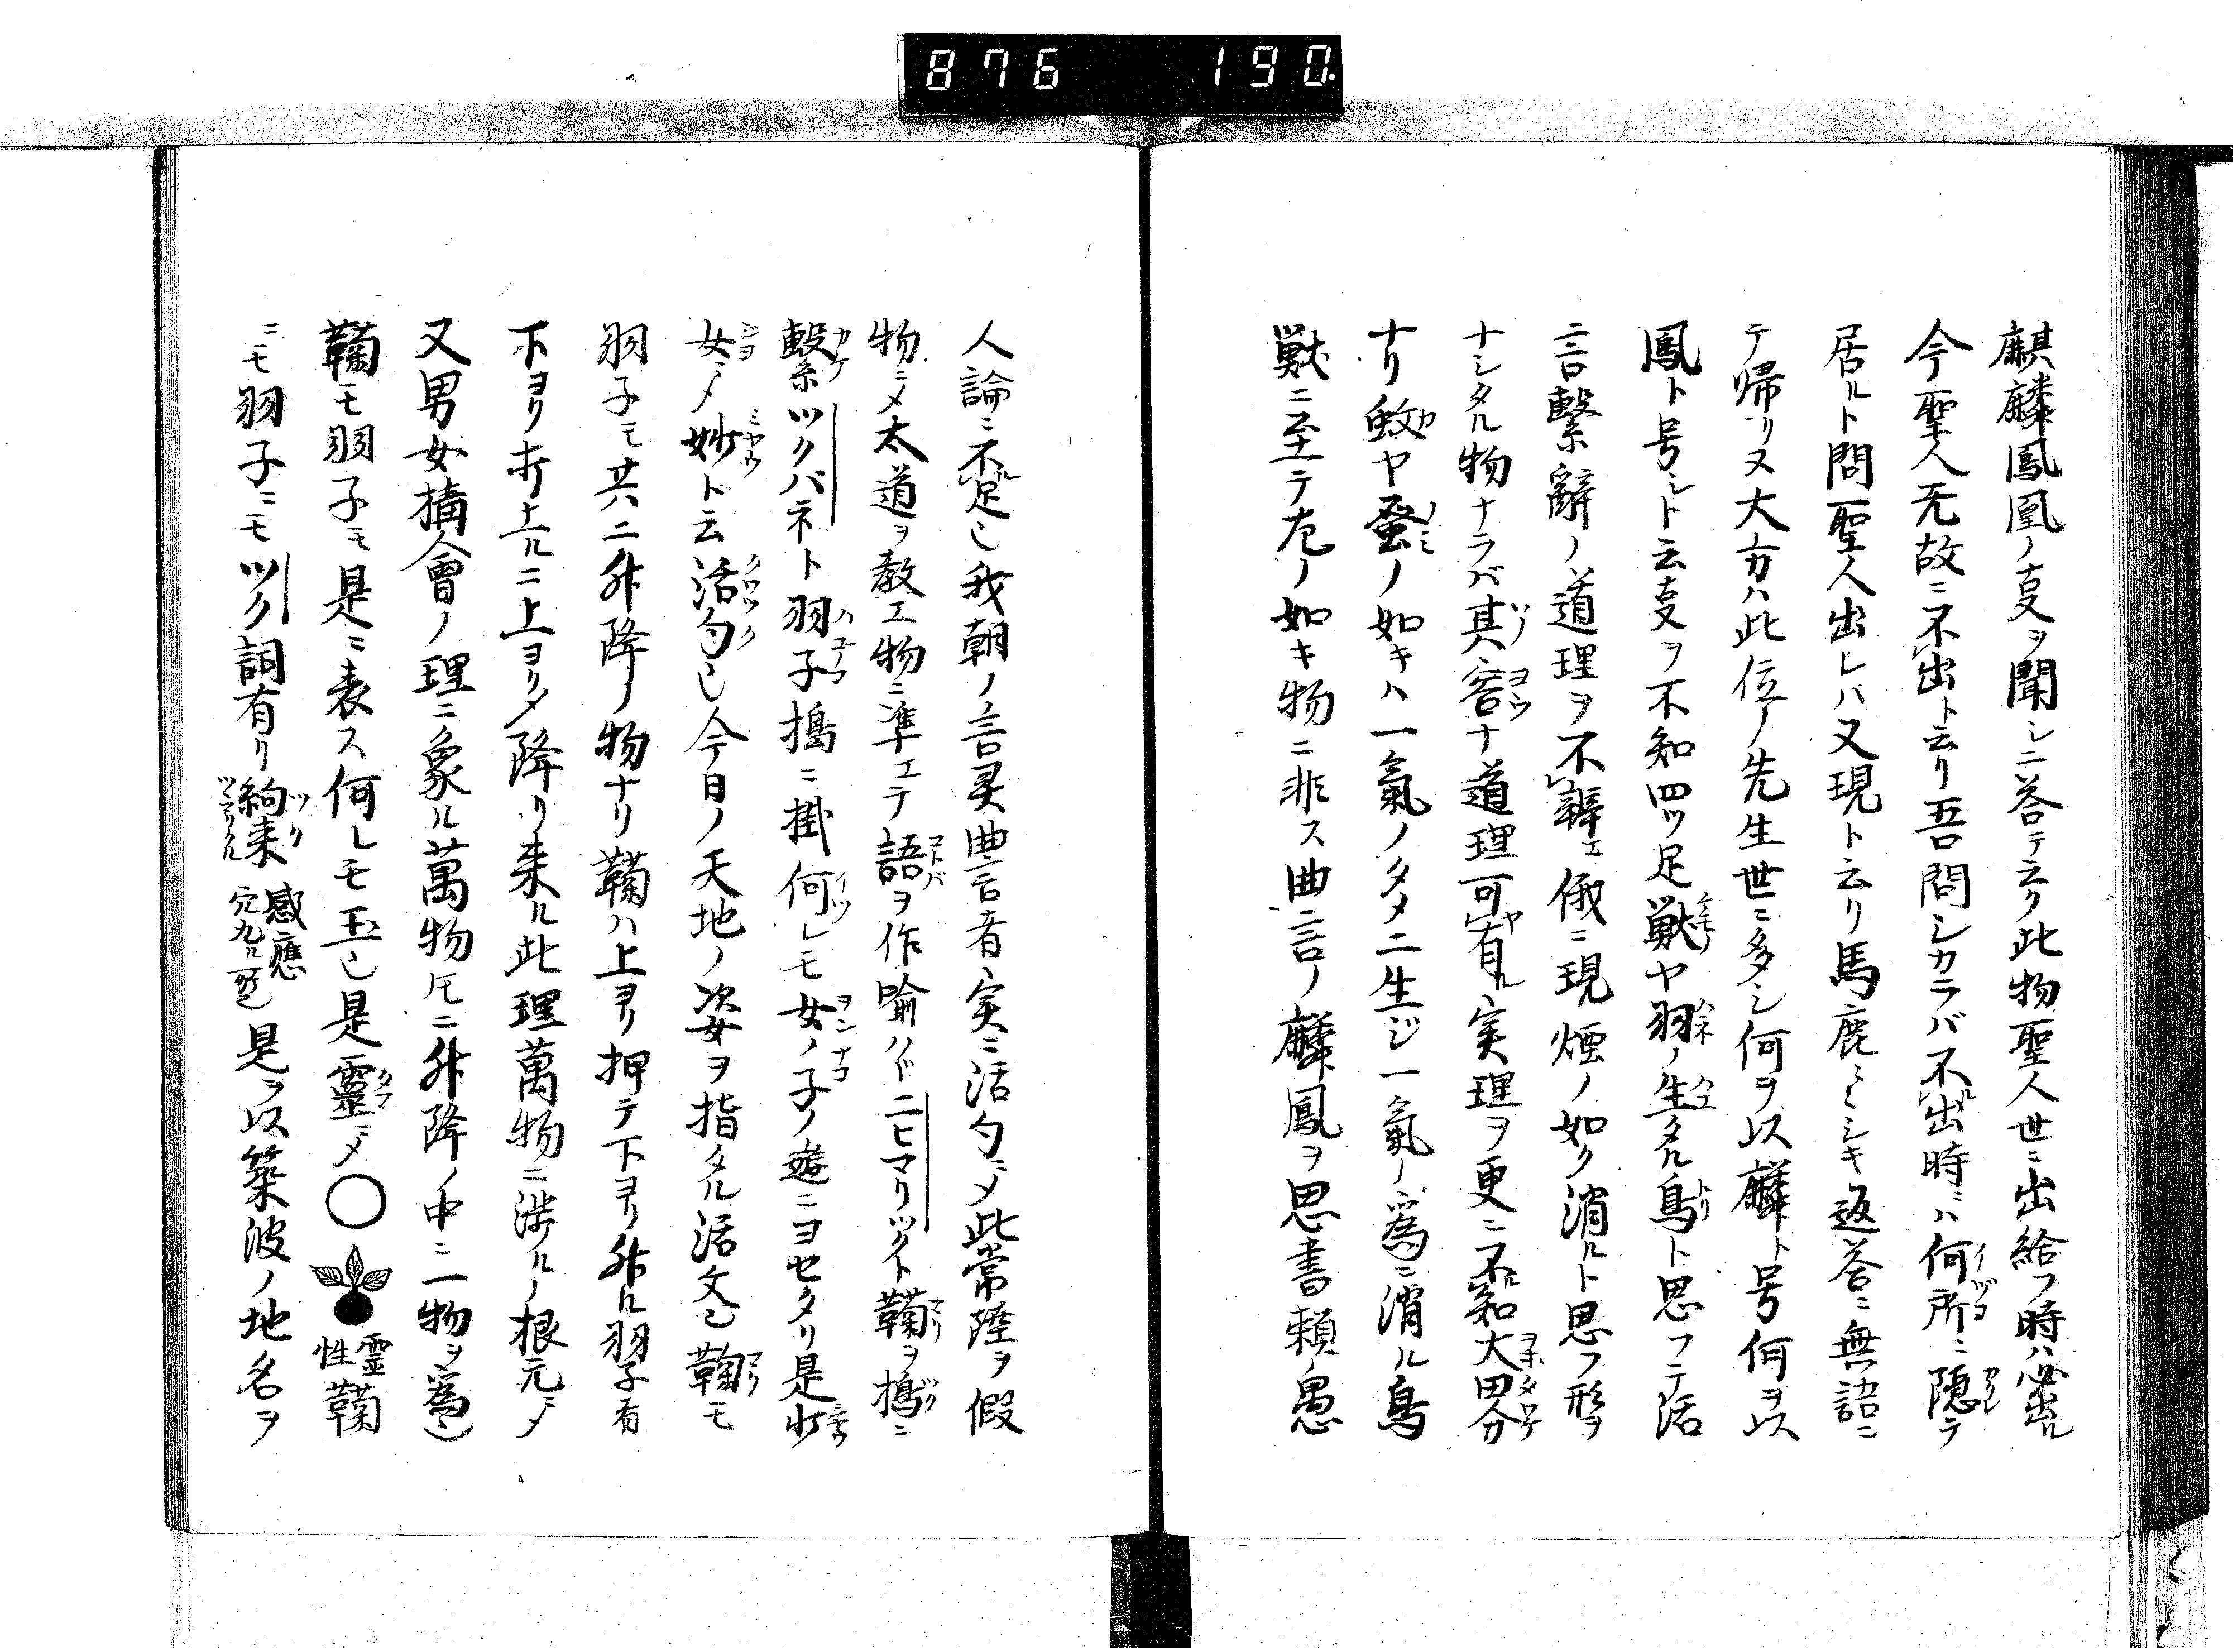 876 190.
麒麟鳳凰ノ㕝ヲ聞シニ答テ云ク此物聖人世ニ出給フ時ハ必出ル
今聖人无故ニ不出ト云リ吾問シカラバ不出時ニハ何所ニ隠テ
居ルト問聖人出レハ又現ト云リ馬鹿〻〻シキ返答ニ無語ニ
テ帰リヌ大方ハ此位ノ先生世ニ多シ何ヲ以麟ト号何ヲ以
鳳ト号シト云㕝ヲ不知四ツ足獣ヤ羽ノ生タル鳥ト思フテ居
言繫辭ノ道理ヲ不辨エ俄ニ現煙ノ如ク消ルト思フ形ヲ
ナシタル物ナラバ其容ナ道理可有ヤ実理ヲ更ニ不知大田分
ナリ蚊ヤ蚤ノ如キハ一氣ノタメニ生ジ一氣ノ為ニ消ル鳥
獣ニ至テ尤ノ如キ物ニ非ス曲言ノ麟鳳ヲ思書頼ノ愚
人論ニ不足也我朝ノ言灵曲言者実ニ活句ニメ此常陸ヲ假
物ニメ太道ヲ教エ物ニ準エテ語ヲ作喩ハバニヒマリツクト鞠ヲ搗ニ
繫ツクバネト羽子搗ニ掛何レモ女ノ子ノ遊ニヨセタリ是少
女ニメ妙ト云活句也今日ノ天地ノ姿ヲ指タル活文也鞠モ
羽子モ共ニ升降ノ物ナリ鞠ハ上ヨリ押テ下ヨリ升ル羽子者
下ヨリ打上ルニ上ヨリメ降リ来ル此理萬物ニ渉ルノ根元ニメ
又男女搆會ノ理ニ象ル萬物𪜈ニ升降ノ中ニ一物ヲ為也
鞠モ羽子モ是ニ表ス何レモ玉也是靈ニメ○ 靈性鞠
ニモ羽子ニモツク詞有リ絢来 感應 是ヲ以築波ノ地名ヲ